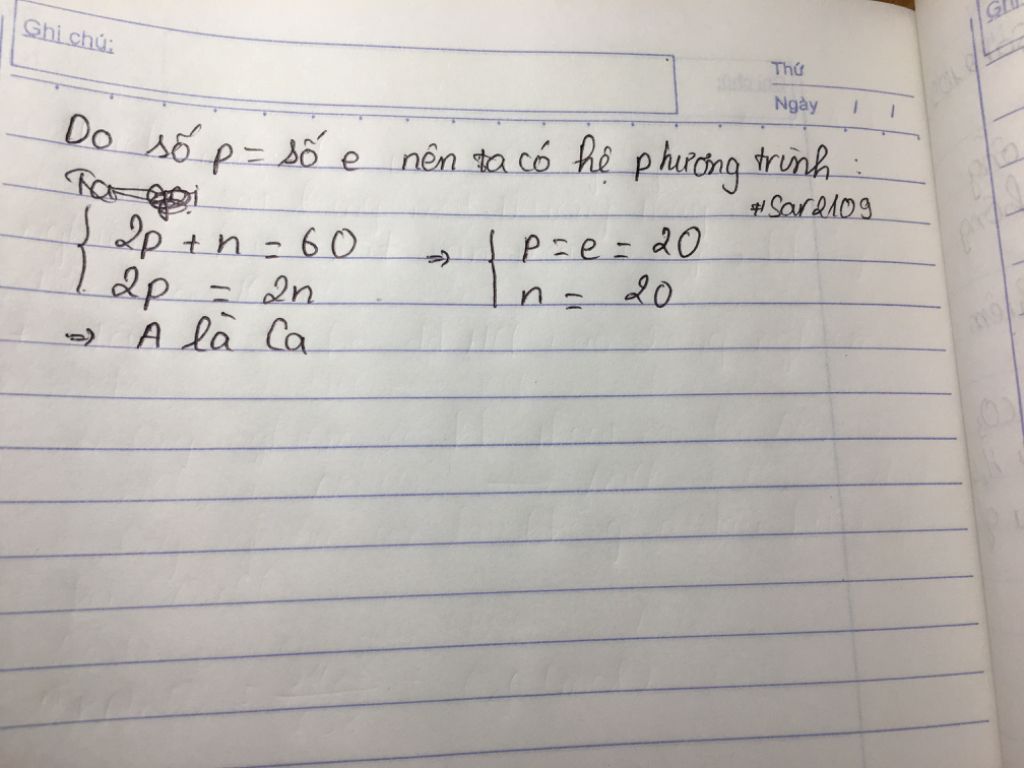 Ghi chú:
Thứ
Ngày / /
Do số p = số e nên ta có hệ phương trình :
#Sar2109
{ 2p + n = 60 => { p = e = 20
2p = 2n n = 20
=> A là Ca